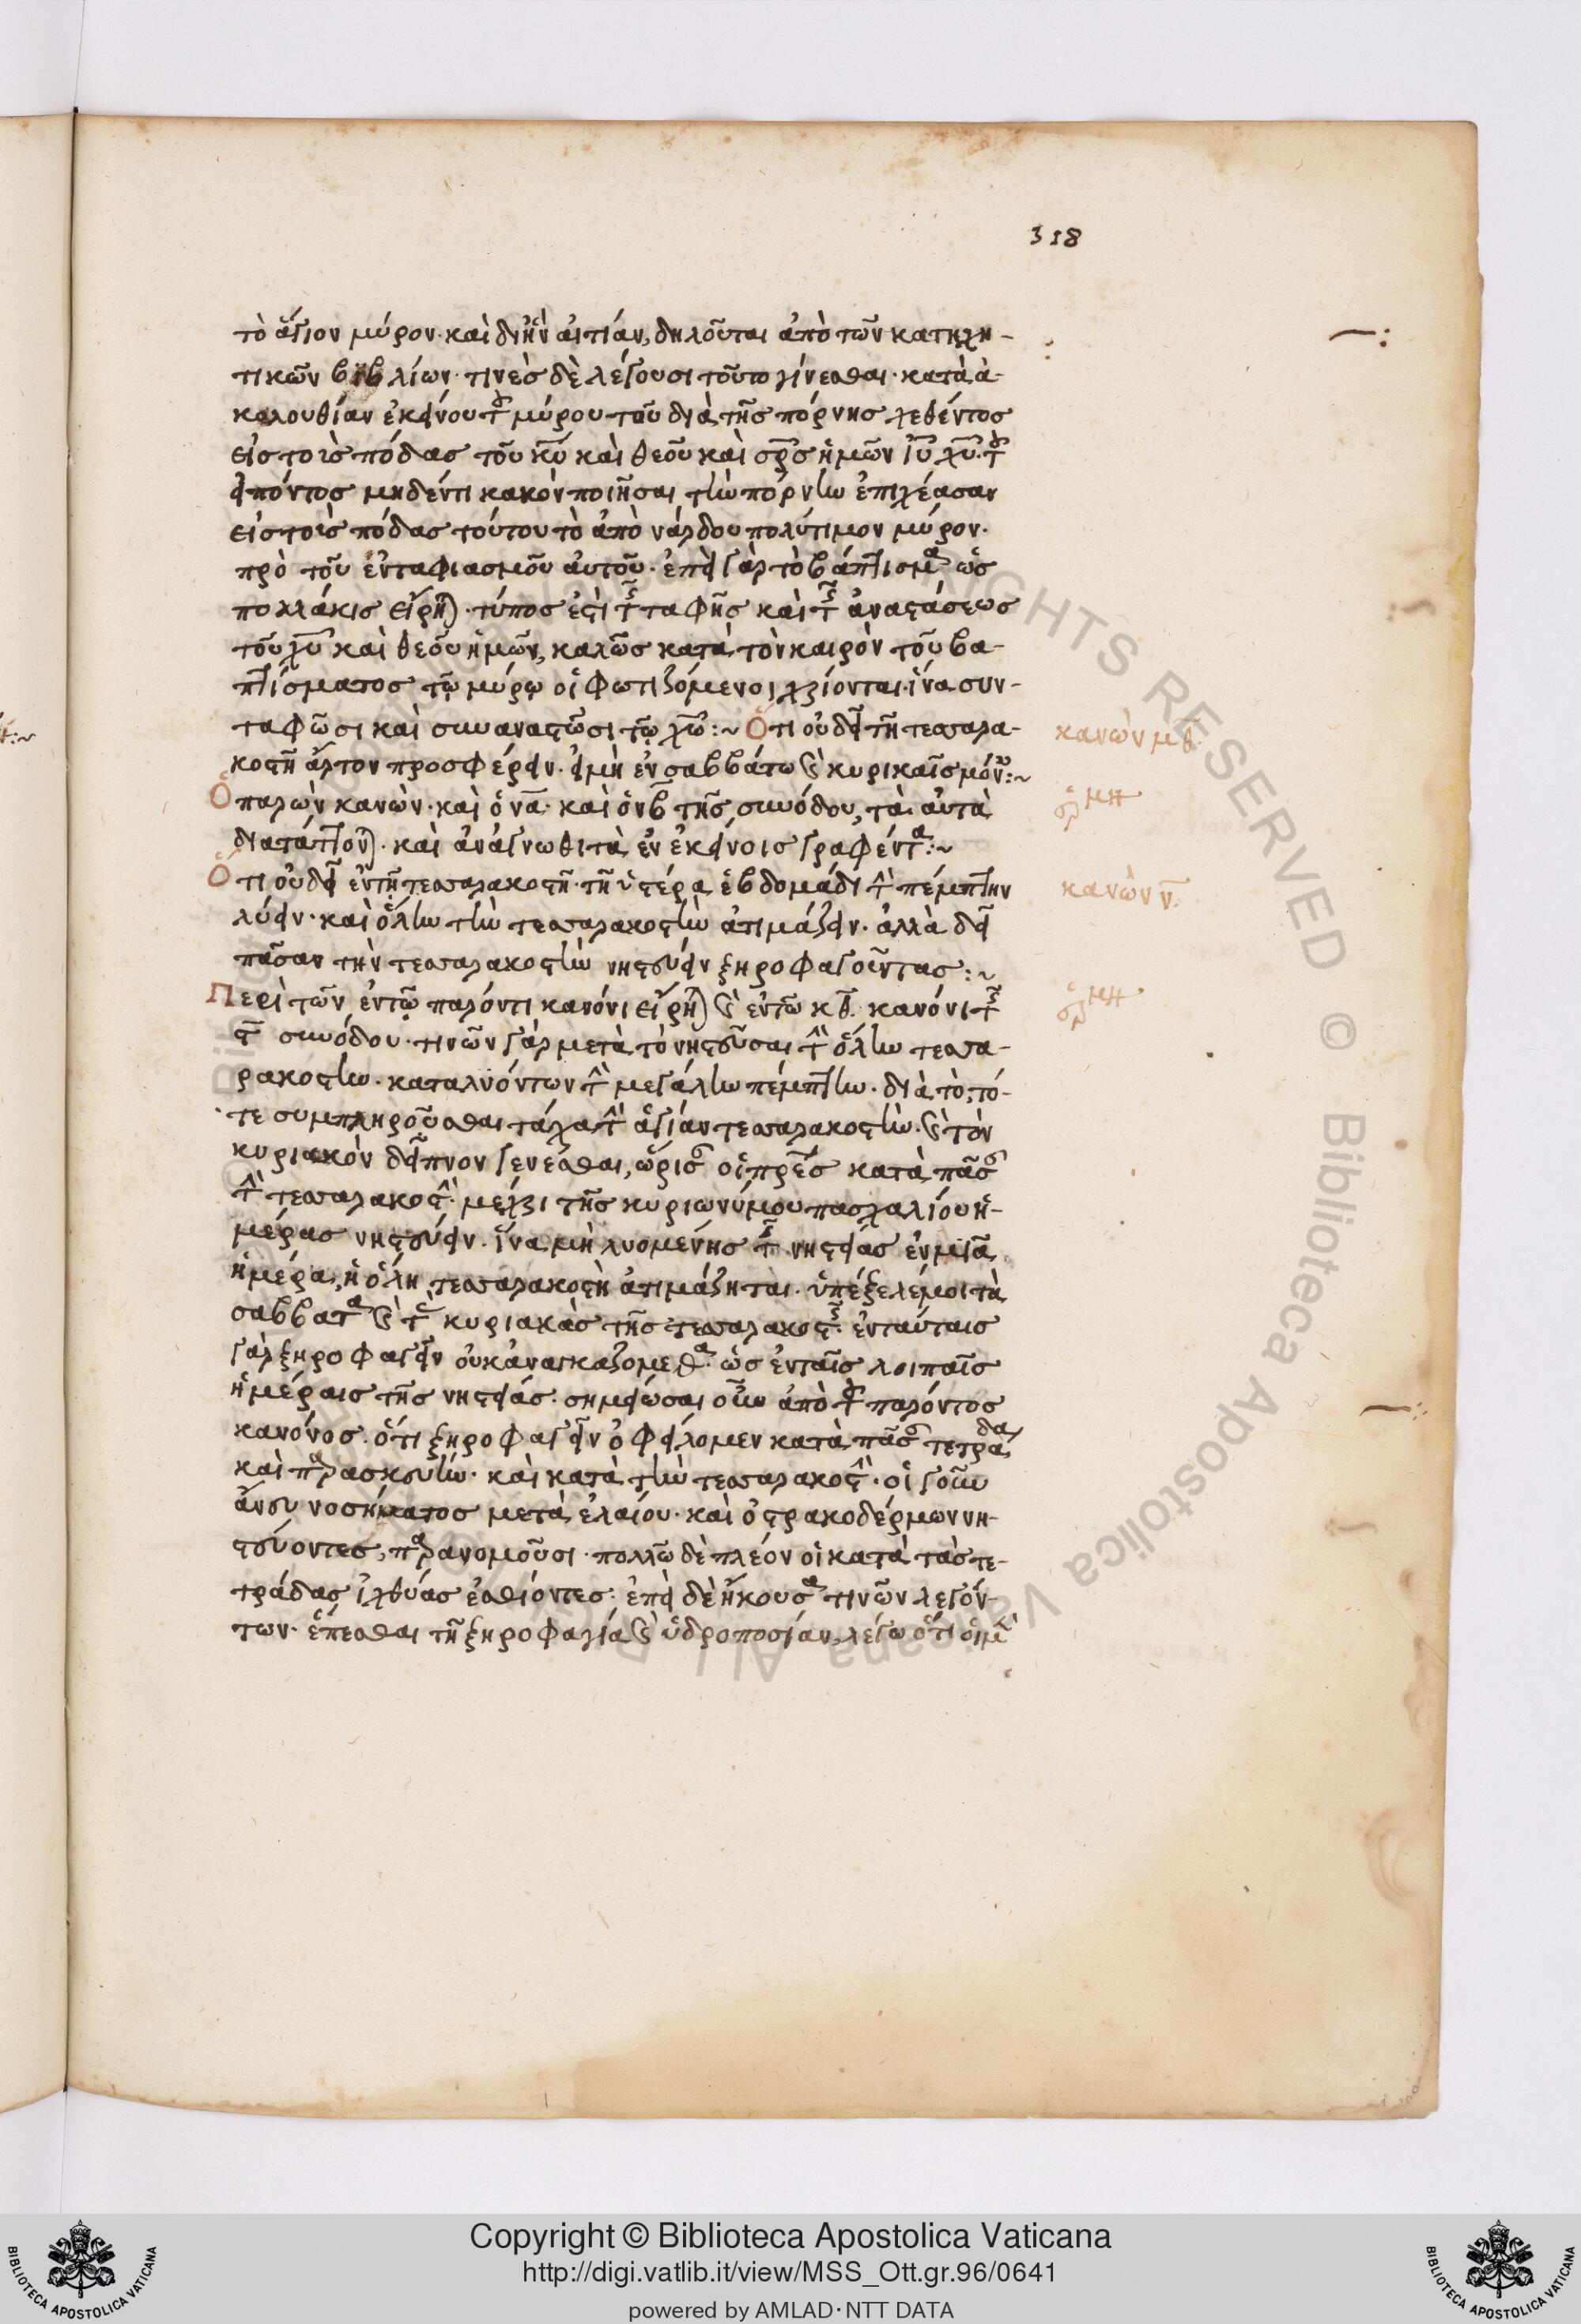 318
τὸ ἅγιον μύρον· καὶ δι' ἣν αἰτίαν, δηλοῦται ἀπὸ τῶν κατηχη-
τικῶν βιβλίων· τινὲς δὲ λέγουσι τοῦτο γίνεσθαι· κατὰ ἀ-
κολουθίαν ἐκείνου τοῦ μύρου τοῦ διὰ τῆς πόρνης χεθέντος
εἰς τοὺς πόδας τοῦ κυ καὶ θεοῦ καὶ σρς ἡμῶν ιυ χυ· τοῦ
εἰπόντος μηδέν τι κακὸν ποιῆσαι τὴν πόρνην ἐπιχέασαν
εἰς τοὺς πόδας τούτου τὸ ἀπὸ νάρδου πολύτιμον μύρον·
πρὸ τοῦ ἐνταφιασμοῦ αὐτοῦ· ἐπεὶ γὰρ τὸ βάπτισμα ὡς
πολλάκις εἴρηται· τύπος ἐστὶ τῆς ταφῆς καὶ τῆς ἀναστάσεως
τοῦ χυ καὶ θεοῦ ἡμῶν, καλῶς κατὰ τὸν καιρὸν τοῦ βα-
πτίσματος τῷ μύρῳ οἱ φωτιζόμενοι χρίονται· ἵνα συν-
ταφῶσι καὶ συναναστῶσι τῷ χω:~ Ὅτι οὐ δεῖ τῇ τεσσαρα-
κοστῇ ἄρτον προσφέρειν· εἰ μὴ ἐν σαββάτω καὶ κυριακαῖς μόνον:~
κανὼν μθ
Ὁ παρὼν κανὼν· καὶ ὁ να· καὶ ὁ νβ τῆς συνόδου, τὰ αὐτὰ
διατάττονται· καὶ ἀνάγνωθι τὰ ἐν ἐκείνοις γραφέντα:~
Ὅτι οὐ δεῖ ἐν τῇ τεσσαρακοστῇ· τῇ ὑστέρα ἑβδομάδι τὴν πέμπτην
κανὼν ν
λύειν· καὶ ὅλην τὴν τεσσαρακοστὴν ἀτιμάζειν· ἀλλὰ δεῖ
πᾶσαν τὴν τεσσαρακοστὴν νηστεύειν ξηροφαγοῦντας:~
Περὶ τῶν ἐν τῷ παρόντι κανόνι εἴρηται καὶ ἐν τῷ κθ· κανόνι τῆς
ς συνόδου· τινῶν γὰρ μετὰ τὸ νηστεῦσαι τὴν ὅλην τεσσα-
ρακοστὴν· καταλυόντων τὴν μεγάλην πέμπτην· διὰ τὸ, τό-
τε συμπληροῦσθαι τάχα τὴν ἁγίαν τεσσαρακοστὴν· καὶ τὸν
κυριακὸν δεῖπνον γενέσθαι, ὥρισαν οἱ πρες κατὰ πᾶσαν
τὴν τεσσαρακοστὴν· μέχρι τῆς κυριωνύμου πασχαλίου ἡ-
μέρας νηστεύειν· ἵνα μὴ λυομένης τῆς νηστείας ἐν μιᾶ
ἡμέρα, ἡ ὅλη τεσσαρακοστὴ ἀτιμάζηται· ὑπέξελέ μοι τὰ
σάββατα καὶ τὰς κυριακὰς τῆς τεσσαρακοστῆς· ἐν ταύταις
γὰρ ξηροφαγεῖν οὐκ ἀναγκαζόμεθα· ὡς ἐν ταῖς λοιπαῖς
ἡμέραις τῆς νηστείας· σημείωσαι οὖν ἀπὸ τοῦ παρόντος
κανόνος· ὅτι ξηροφαγεῖν ὀφείλομεν κατὰ πᾶσαν τετράδα
καὶ παρασκευὴν· καὶ κατὰ τὴν τεσσαρακοστὴν· οἱ γοῦν
ἄνευ νοσήματος μετὰ ἐλαίου· καὶ ὀστρακοδέρμων νη-
στεύοντες, παρανομοῦσι· πολλῶ δὲ πλέον οἱ κατὰ τὰς τε-
τράδας ἰχθύας ἐσθίοντες· ἐπεὶ δὲ ἤκουσα τινῶν λεγόν-
των· ἕπεσθαι τῇ ξηροφαγία καὶ ὑδροποσίαν, λέγω ὅτι οἱ μὲν
Copyright © Biblioteca Apostolica Vaticana
http://digi.vatlib.it/view/MSS_Ott.gr.96/0641
powered by AMLAD·NTT DATA